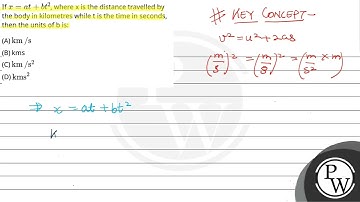 If x = at + bt², where x is the distance travelled by
the body in kilometres while t is the time in seconds,
then the units of b is:
(A) km /s
(B) kms
(C) km /s²
(D) kms²
# KEY CONCEPT-
v² = u² + 2as
(m/s)² = (m/s)² = (m/s² × m)
⇒ x = at + bt²
PW